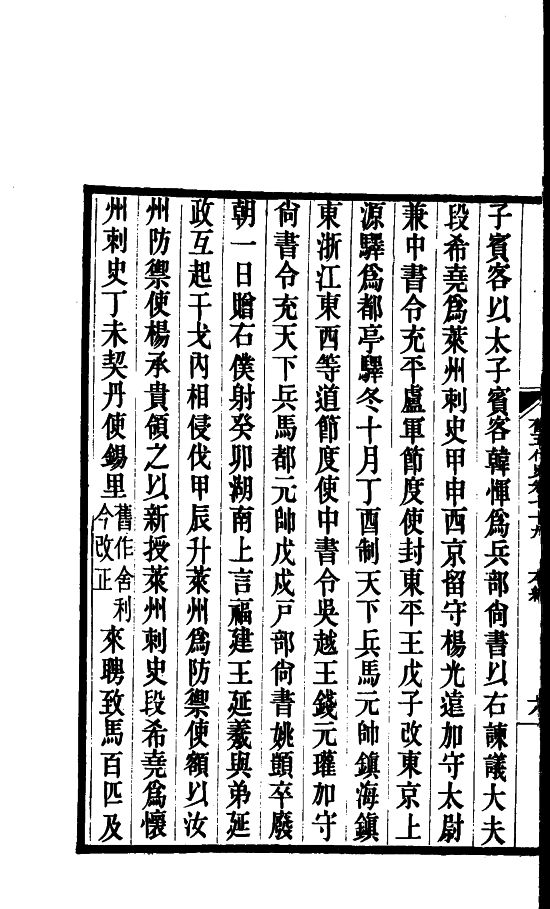 子賓客以太子賓客韓惲爲兵部尚書以右諫議大夫
段希堯爲萊州刺史甲申西京留守楊光遠加守太尉
兼中書令充平盧軍節度使封東平王戊子改東京上
源驛爲都亭驛冬十月丁酉制天下兵馬元帥鎮海鎮
東浙江東西等道節度使中書令吳越王錢元瓘加守
尚書令充天下兵馬都元帥戊戌戸部尚書姚顗卒廢
朝一日贈右僕射癸卯湖南上言福建王延羲與弟延
政互起干戈內相侵伐甲辰升萊州爲防禦使額以汝
州防禦使楊承貴領之以新授萊州刺史段希堯爲懷
州刺史丁未契丹使錫里舊作舍利今改正來聘致馬百匹及